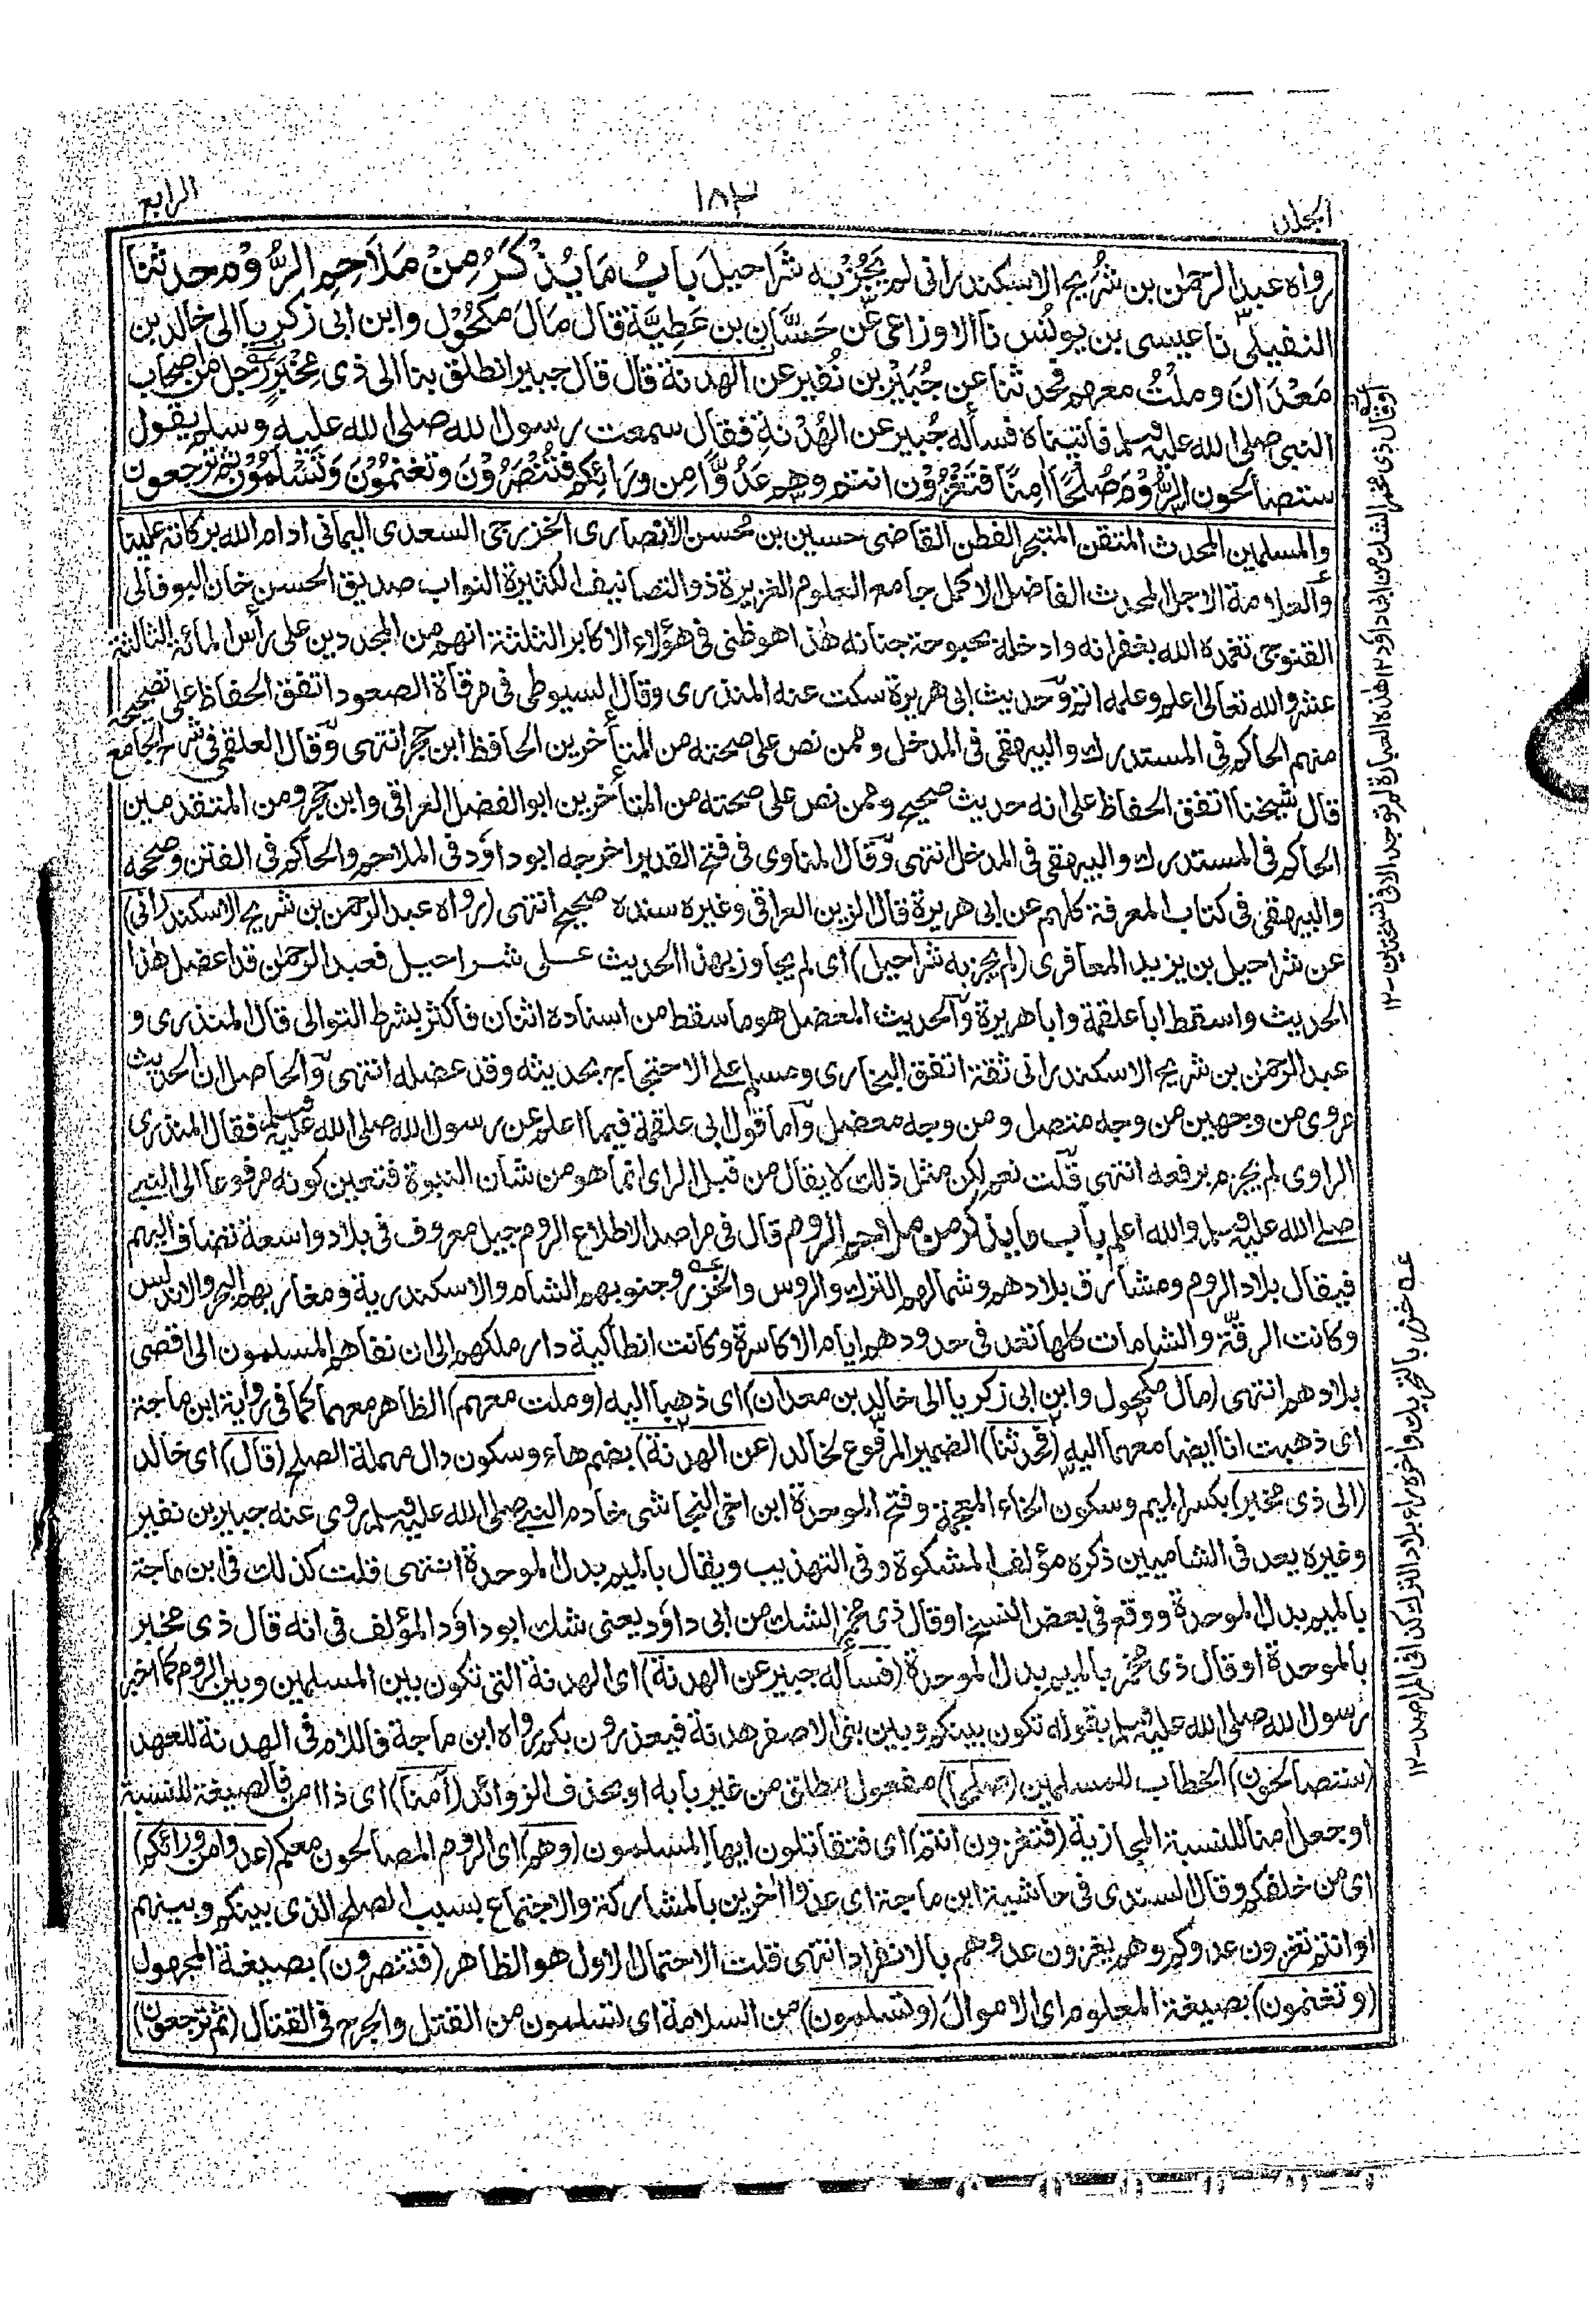 المجلد
١٨٣
الرابع
رواه عبد الرحمٰن بن شُرَيح الاسكندرانى لم يَجُزْ به شَرَاحيلَ بَابُ مَا يُذْكَرُ مِنْ مَلَاحِمِ الرُّوْمِ حدثنا
النفيلىُّ نا عيسى بن يونُس نا الاوزاعى عَن حَسَّانِ بن عَطِيَّةَ قال مَالَ مَكحُوْل وابن ابى زكريا الى خالد بن
مَعْدَانَ وملْتُ معهم فحدثنا عن جُبَيْرِ بن نُفَير عن الهدنة قال قال جبير انطلق بنا الى ذى مِخْبَرٍ رجل من اصحاب
النبى صلى الله عليه وسلم فاتيناه فسأله جُبير عن الهُدْنَةِ فقال سمعت رسول الله صلى الله عليه وسلم يقول
ستصالحون الرُّوْمَ صُلْحًا اٰمِنًا فَتَغْزُوْن انتم وهم عَدُوًّا من ورَائِكم فتُنْصَرُوْنَ وتَغنمُوْنَ وَتَسْلَمُوْنَ ثم ترجعون
والمسلمين المحدث المتقن المتبحر الفطن القاضى حسين بن محسن الانصارى الخزرجى السعدى اليمانى ادام الله بركاته علينا
والعلامة الاجل المحدث الفاضل الاكمل جامع العلوم الغزيرة ذو التصانيف الكثيرة النواب صديق الحسن خان البوفالى
القنوجى تغمده الله بغفرانه وادخله بحبوحة جنانه هٰذا هو ظنى فى هؤلاء الاكابر الثلثة انهم من المجددين على رأس المائة الثالثة
عشر والله تعالى اعلم وعلمه اتم وحديث ابى هريرة سكت عنه المنذرى وقال السيوطى فى مرقاة الصعود اتفق الحفاظ على تصحيحه
منهم الحاكم فى المستدرك والبيهقى فى المدخل وممن نص على صحته من المتأخرين الحافظ ابن حجر انتهى وقال العلقمى فى شرح الجامع
قال شيخنا اتفق الحفاظ على انه حديث صحيح وممن نص على صحته من المتأخرين ابو الفضل العراقى وابن حجر ومن المتقدمين
الحاكم فى المستدرك والبيهقى فى المدخل انتهى وقال المناوى فى فتح القدير اخرجه ابو داود فى الملاحم والحاكم فى الفتن وصححه
والبيهقى فى كتاب المعرفة كلهم عن ابى هريرة قال الزين العراقى وغيره سنده صحيح انتهى (رواه عبد الرحمن بن شريح الاسكندرانى)
عن شراحيل بن يزيد المعافرى (لم يجز به شراحيل) اى لم يجاوز بهذا الحديث على شراحيل فعبد الرحمٰن قد اعضل هذا
الحديث واسقط ابا علقمة وابا هريرة والحديث المعضل هو ما سقط من اسناده اثنان فاكثر بشرط التوالى قال المنذرى و
عبد الرحمٰن بن شريح الاسكندرانى ثقة اتفق البخارى ومسلم على الاحتجاج بحديثه وقد عضله انتهى والحاصل ان الحديث
مروى من وجهين من وجه متصل ومن وجه معضل واما قول ابى علقمة فيما اعلم عن رسول الله صلى الله عليه وسلم فقال المنذرى
الراوى لم يجزم برفعه انتهى قلت نعم لكن مثل ذلك لا يقال من قبل الراى انما هو من شان النبوة فتعين كونه مرفوعا الى النبى
صلى الله عليه وسلم والله اعلم باب ما يذكر من ملاحم الروم قال فى مراصد الاطلاع الروم جيل معروف فى بلاد واسعة تضاف اليهم
فيقال بلاد الروم ومشارق بلادهم وشمالهم الترك والروس والخزر وجنوبهم الشام والاسكندرية ومغاربهم البحر والاندلس
وكانت الرقة والشامات كلها تعد فى حدودهم ايام الاكاسرة وكانت انطاكية دار ملكهم الى ان نفاهم المسلمون الى اقصى
بلادهم انتهى (مال مكحول وابن ابى زكريا الى خالد بن معدان) اى ذهبا اليه (وملت معهم) الظاهر معهما كما فى رواية ابن ماجة
اى ذهبت انا ايضا معهما اليه (فحدثنا) الضمير المرفوع لخالد (عن الهدنة) بضم هاء وسكون دال مهملة الصلح (قال) اى خالد
(الى ذى مخبر) بكسر الميم وسكون الخاء المعجمة وفتح الموحدة ابن اخى النجاشى خادم النبى صلى الله عليه وسلم روى عنه جبير بن نفير
وغيره يعد فى الشاميين ذكره مؤلف المشكوة وفى التهذيب ويقال بالميم بدل الموحدة انتهى قلت كذلك فى ابن ماجة
بالميم بدل الموحدة ووقع فى بعض النسخ او قال ذى مخمر الشك من ابى داود يعنى شك ابو داود المؤلف فى انه قال ذى مخبر
بالموحدة او قال ذى مخمر بالميم بدل الموحدة (فسأله جبير عن الهدنة) اى الهدنة التى تكون بين المسلمين وبين الروم كما اخبر
رسول الله صلى الله عليه وسلم بقوله تكون بينكم وبين بنى الاصفر هدنة فيغدرون بكم رواه ابن ماجة فاللام فى الهدنة للعهد
(ستصالحون) الخطاب للمسلمين (صلحا) مفعول مطلق من غير بابه او بحذف الزوائد (اٰمنا) اى ذا امن فالصيغة للنسبة
او جعل اٰمنا للنسبة المجازية (فتغزون انتم) اى فتقاتلون ايها المسلمون (وهم) اى الروم المصالحون معكم (عدوا من ورائكم)
اى من خلفكم وقال السندى فى حاشية ابن ماجة اى عدوا اٰخرين بالمشاركة والاجتماع بسبب الصلح الذى بينكم وبينهم
او انتم تغزون عدوكم وهم يغزون عدوهم بالانفراد انتهى قلت الاحتمال الاول هو الظاهر (فتنصرون) بصيغة المجهول
(وتغنمون) بصيغة المعلوم اى الاموال (وتسلمون) من السلامة اى تسلمون من القتل والجرح فى القتال (ثم ترجعون)
او قال ذى مخمر الشك من ابى داود ١٢ هذه العبارة لم توجد الا فى نسختين ١٢
عه خزر بالتحريك واٰخره راء بلاد الترك كذا فى المراصد ١٢